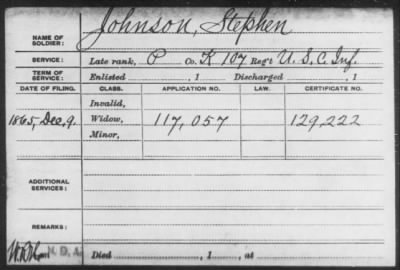 Johnson, Stephen
NAME OF SOLDIER:
SERVICE: Late rank, P Co. K 107 Reg't U. S. C. Inf.
TERM OF SERVICE: Enlisted , 1 Discharged , 1
DATE OF FILING. CLASS. APPLICATION NO. LAW. CERTIFICATE NO.
Invalid,
1865, Dec. 9. Widow, 117,057 129,222
Minor,
ADDITIONAL SERVICES:
REMARKS:
N.D.A. Died , 1 , at